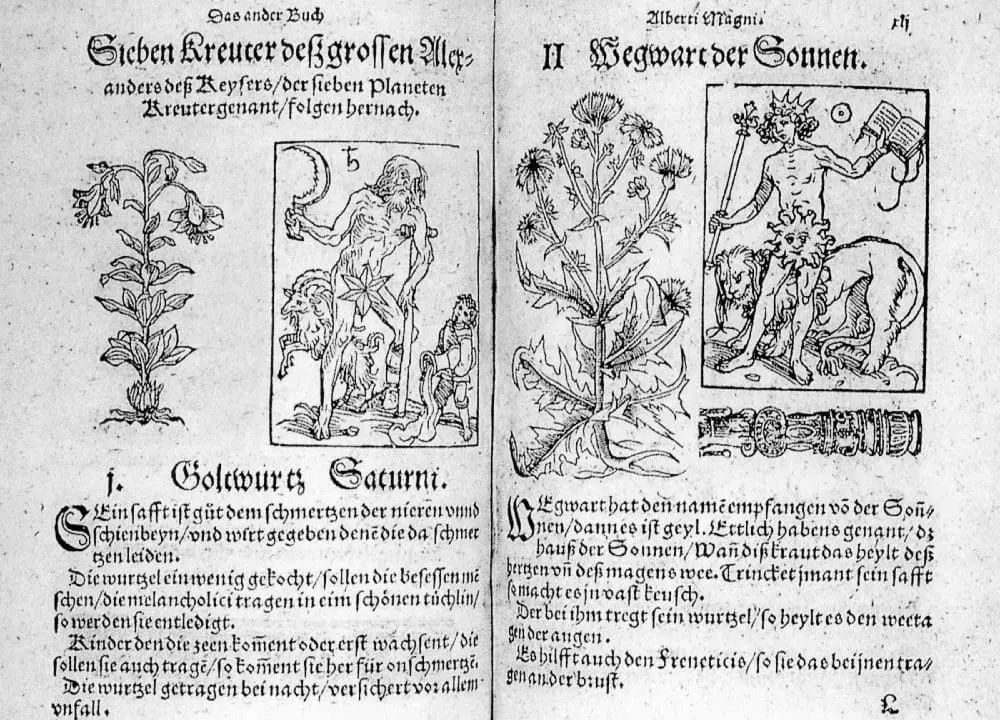 Das ander Buch
Sieben Kreuter deß grossen Alex⸗
anders deß Keysers/der sieben Planeten
Kreuter genant/folgen hernach.
♄
j. Goltwurtz Saturni.
SEin safft ist gůt dem schmertzen der nieren vnnd
schienbeyn/vnd wirt gegeben denē die da schmer
tzen leiden.
Die wurtzel ein wenig gekocht/sollen die besessen mē
schen/die melancholici tragen in eim schönen tüchlin/
so werden sie entledigt.
Kinder den die zeen kom̄ent oder erst wachsent/die
sollen sie auch tragē/so kom̄ent sie her für on schmertzē.
Die wurtzel getragen bei nacht/versichert vor allem
vnfall.
Alberti Magni. xlj
II Wegwart der Sonnen.
☉
WEgwart hat den namē empfangen vō der Soñ⸗
nen/dann es ist geyl. Ettlich habens genant/dz
hauß der Sonnen/Wañ diß kraut das heylt deß
hertzen vñ deß magens wee. Trincket jmant sein safft
so macht es jn vast keusch.
Der bei ihm tregt sein wurtzel/so heylt es den weeta
gen der augen.
Es hilfft auch den Freneticis/so sie das bei jnen tra⸗
gen an der brust.